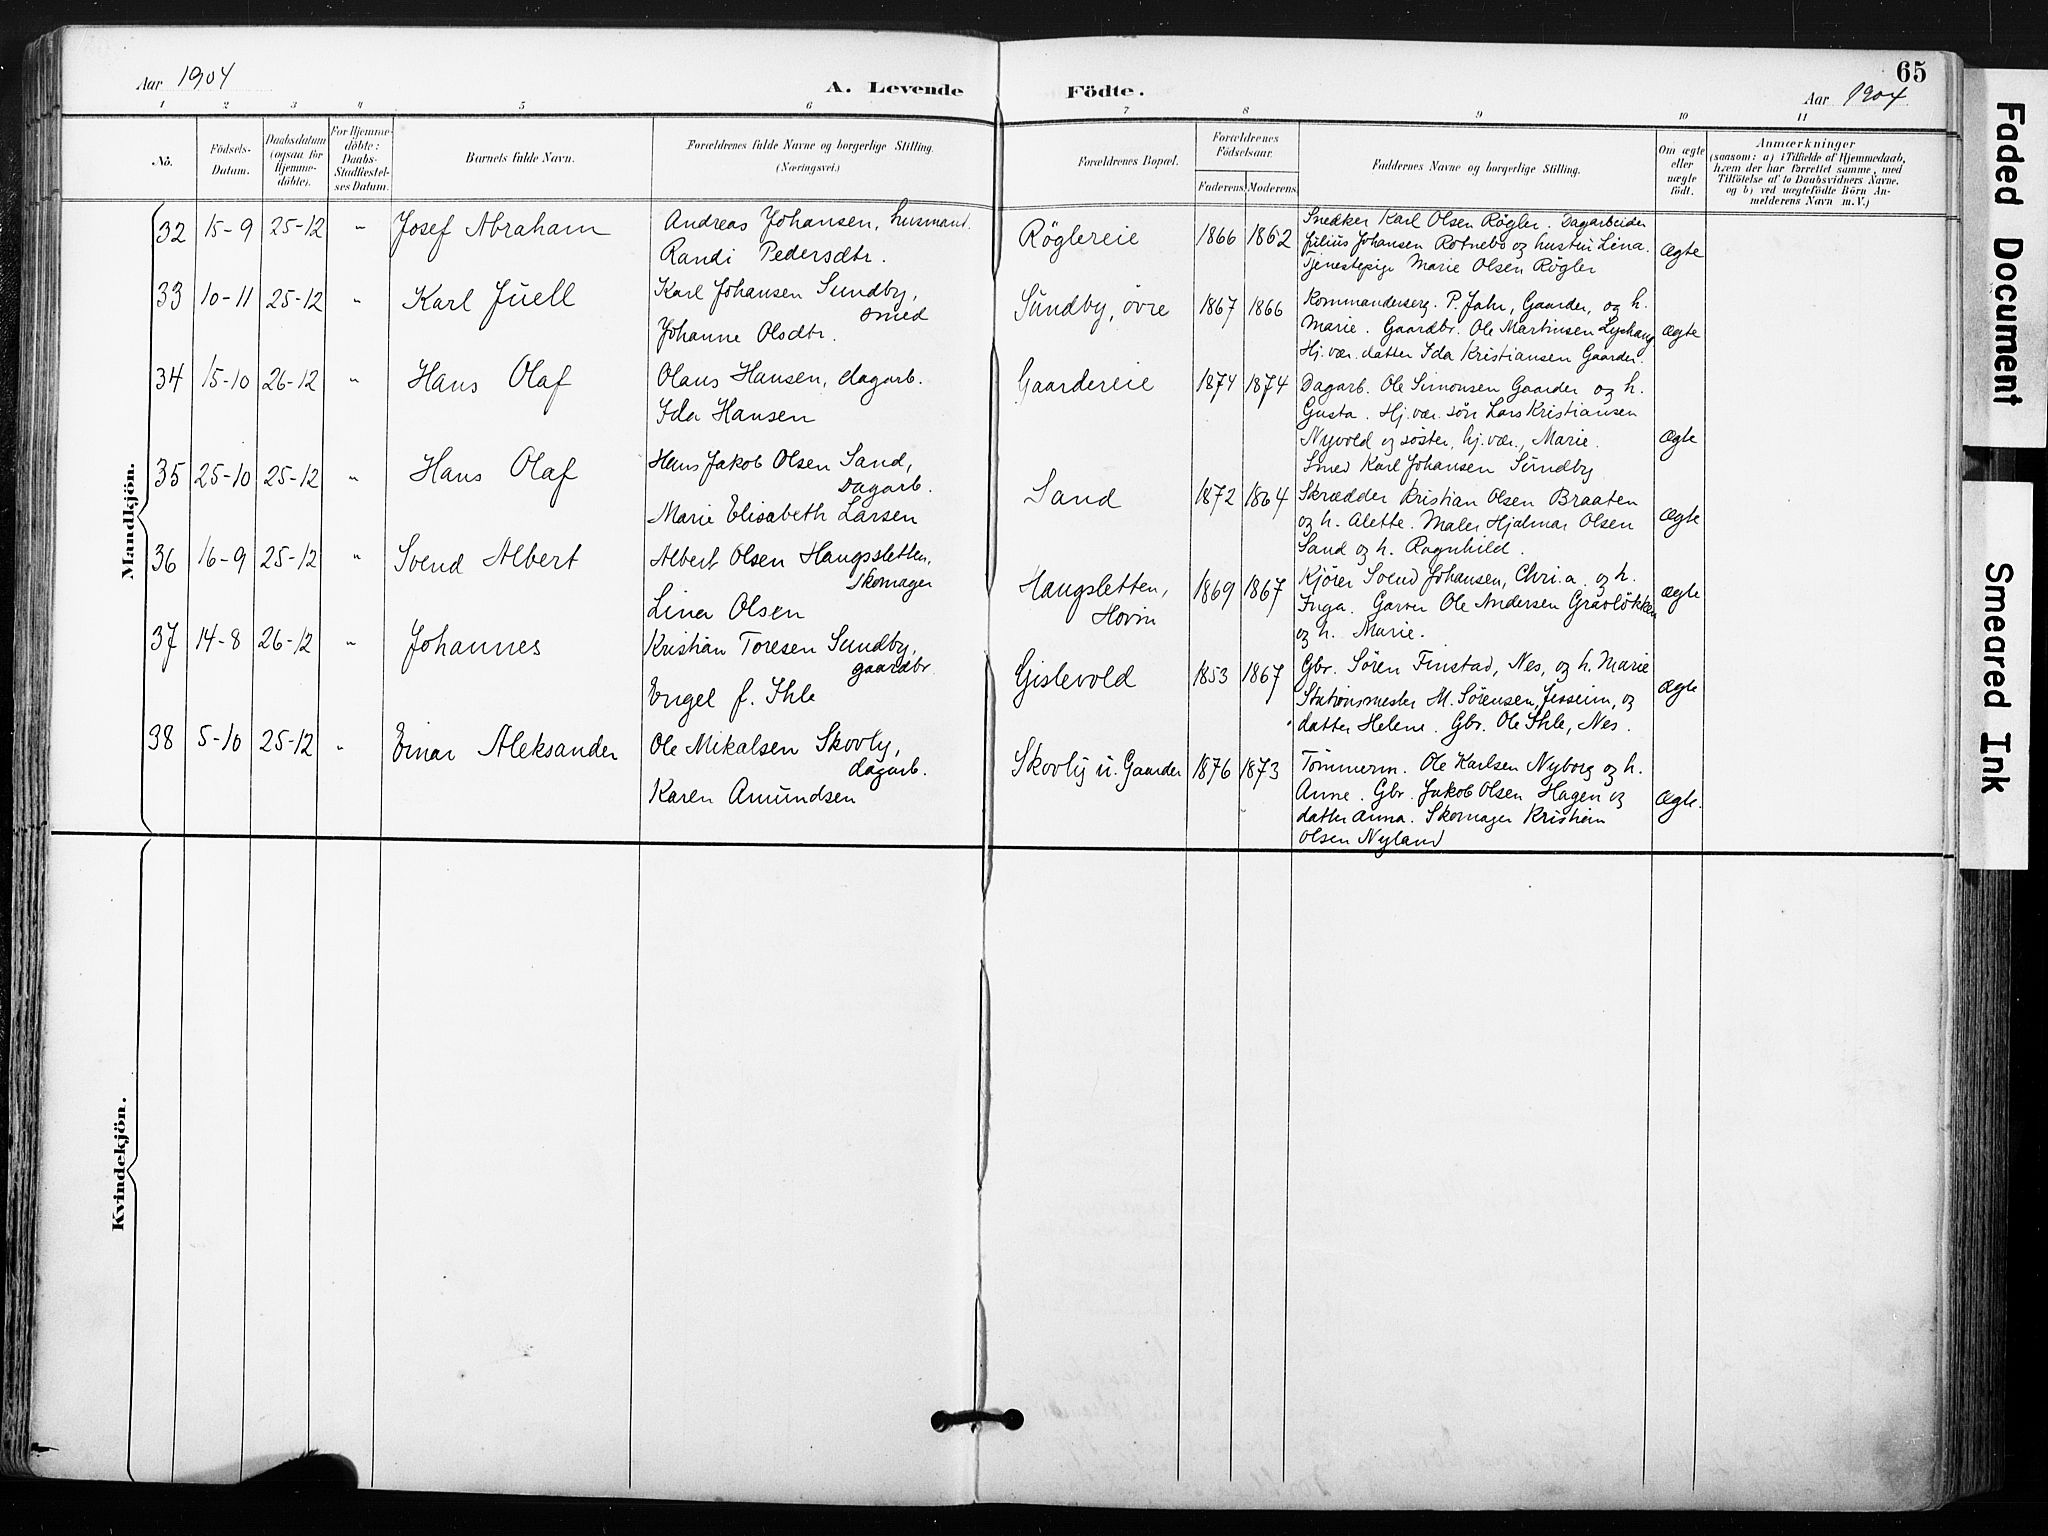 Aar 1904
A. Levende Födte.
65
Aar 1904
1 2 3 4 5 6 7 8 9 10 11
No.
Födsels-
Datum.
Daabsdatum
(ogsaa for
Hjemme-
döbte).
For Hjemme-
döbte:
Daabs-
Stadfæstel-
ses Datum.
Barnets fulde Navn.
Forældrenes fulde Navne og borgerlige Stilling.
(Næringsvei.)
Forældrenes Bopæl.
Forældrenes
Födselsaar.
Faderens. Moderens.
Faddernes Navne og borgerlige Stilling.
Om ægte
eller
uægte
födt.
Anmærkninger
(saasom: a) i Tilfælde af Hjemmedaab,
hvem der har forrettet samme, med
Tilföielse af to Daabsvidners Navne,
og b) ved uægtefödte Börn An-
melderens Navn m. V.)
Mandkjön.
32 15-9 25-12 " Josef Abraham
Andreas Johansen, husmand.
Randi Pedersdtr.
Røglereie 1866 1862
Snedker Karl Olsen Røgler. Dagarbeider
Julius Johansen Rotnebo og hustru Lina.
Tjenestepige Marie Olsen Røgler
Ægte
33 10-11 25-12 " Karl Juell
Karl Johansen Sundby,
smed
Johanne Olsdtr.
Sundby, övre 1867 1866
Kommanderserg. P. Jahr, Gaarder, og h.
Marie. Gaardbr. Ole Martinsen Lyshaug
Hj. vær. datter Ida Kristiansen Gaarder.
Ægte
34 15-10 26-12 " Hans Olaf
Olaus Hansen, dagarb.
Ida Hansen
Gaardereie 1874 1874
Dagarb. Ole Simonsen Gaarder og h.
Gusta. Hj. vær. søn Lars Kristiansen
Nyvold og søster, hj. vær., Marie.
Smed Karl Johansen Sundby
Ægte
35 25-10 25-12 " Hans Olaf
Hans Jakob Olsen Sand,
Dagarb.
Marie Elisabeth Larsen
Sand 1872 1864
Skrædder Kristian Olsen Braaten
og h. Alette. Maler Hjalmar Olsen
Sand og h. Ragnhild.
Ægte
36 16-9 25-12 " Svend Albert
Albert Olsen Haugssletten,
Skomager
Lina Olsen
Haugsletten,
Hovin
1869 1867
Kjører Svend Johansen, Chri.a. og h.
Inga. Garver Ole Andersen Gravløkken
og h. Marie.
Ægte
37 14-8 26-12 " Johannes
Kristian Toresen Sundby,
gaardbr.
Engel f. Ihle
Gislevold 1853 1867
Gbr. Sören Finstad, Nes, og h. Marie
Stationsmester M. Sørensen, Jessheim, og
datter Helene. Gbr. Ole Ihle, Nes.
Ægte
38 5-10 25-12 " Einar Aleksander
Ole Mikalsen Skovly,
dagarb.
Karen Amundsen
Skovly u. Gaarder 1876 1873
Tömmerm. Ole Karlsen Nyborg og h.
Anne. Gbr. Jakob Olsen Hagen og
datter Anna. Skomager Kristian
Olsen Nyland
Ægte.
Kvindekjön.
Faded Document
Smeared Ink